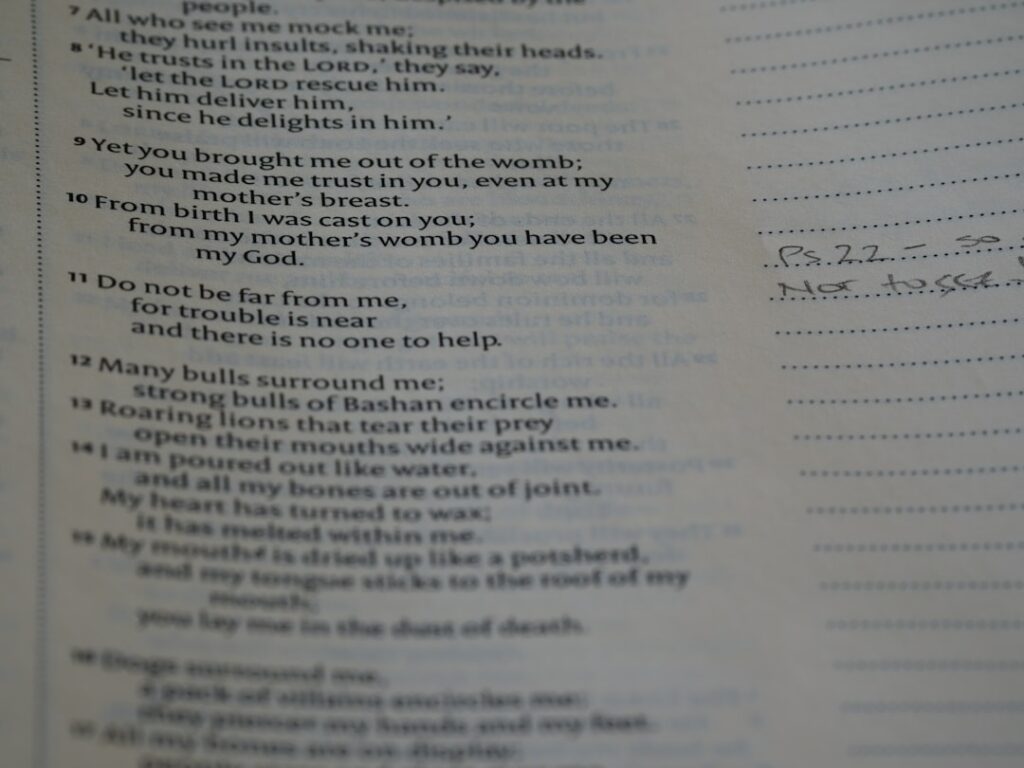 people.
7 All who see me mock me;
they hurl insults, shaking their heads.
8 ‘He trusts in the LORD,’ they say,
‘let the LORD rescue him.
Let him deliver him,
since he delights in him.’
9 Yet you brought me out of the womb;
you made me trust in you, even at my
mother’s breast.
10 From birth I was cast on you;
from my mother’s womb you have been
my God.
11 Do not be far from me,
for trouble is near
and there is no one to help.
12 Many bulls surround me;
strong bulls of Bashan encircle me.
13 Roaring lions that tear their prey
open their mouths wide against me.
14 I am poured out like water,
and all my bones are out of joint.
My heart has turned to wax;
it has melted within me.
15 My mouth is dried up like a potsherd,
and my tongue sticks to the roof of my
mouth;
you lay me in the dust of death.
16 Dogs surround me,
a pack of villains encircles me;
they pierce my hands and my feet.
17 All my bones are on display;
Ps 22 – so
Not